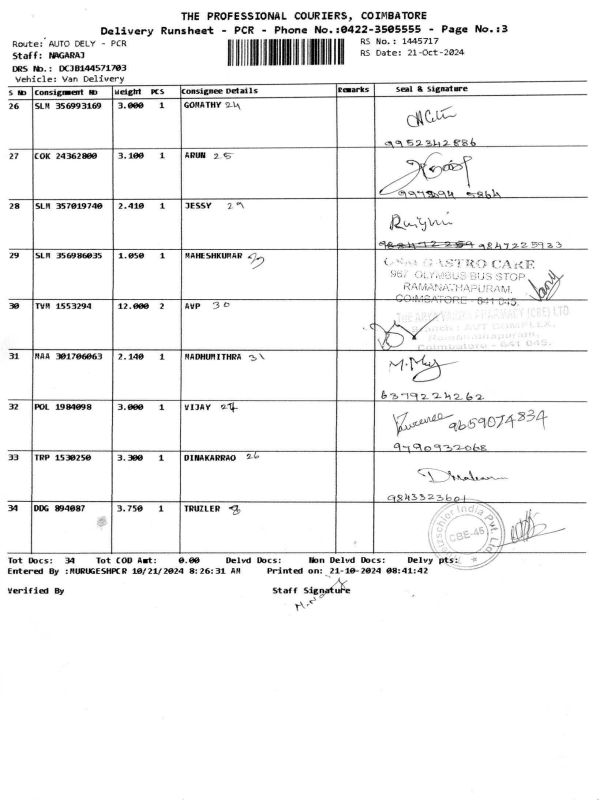 THE PROFESSIONAL COURIERS, COIMBATORE
Delivery Runsheet - PCR - Phone No.:0422-3505555 - Page No.:3
Route: AUTO DELY - PCR
RS No.: 1445717
Staff: NAGARAJ
RS Date: 21-Oct-2024
DRS No.: DCJB144571703
Vehicle: Van Delivery
S No Consignment No Weight PCS Consignee Details Remarks Seal & Signature
26 SLM 356993169 3.000 1 GOMATHY 24
9952342886
27 COK 24362800 3.100 1 ARUN 25
28 SLM 357019740 2.410 1 JESSY 29
9847225933
29 SLM 356986035 1.050 1 MAHESHKUMAR
GASTRO CARE
987 OLYMBUS BUS STOP,
RAMANATHAPURAM,
COIMBATORE - 641 045.
30 TVM 1553294 12.000 2 AVP 30
PHARMACY (CBE) LTD
Ramanathapuram,
Coimbatore - 641 045.
31 MAA 301706063 2.140 1 MADHUMITHRA 31
6379224262
32 POL 1984098 3.000 1 VIJAY
9659074834
9790932068
33 TRP 1530250 3.300 1 DINAKARRAO 26
9843323601
34 DDG 894087 3.750 1 TRUZLER
India Pvt. Ltd
CBE-45
Tot Docs: 34 Tot COD Amt: 0.00 Delvd Docs: Non Delvd Docs: Delvy pts:
Entered By :MURUGESHPCR 10/21/2024 8:26:31 AM Printed on: 21-10-2024 08:41:42
Verified By Staff Signature